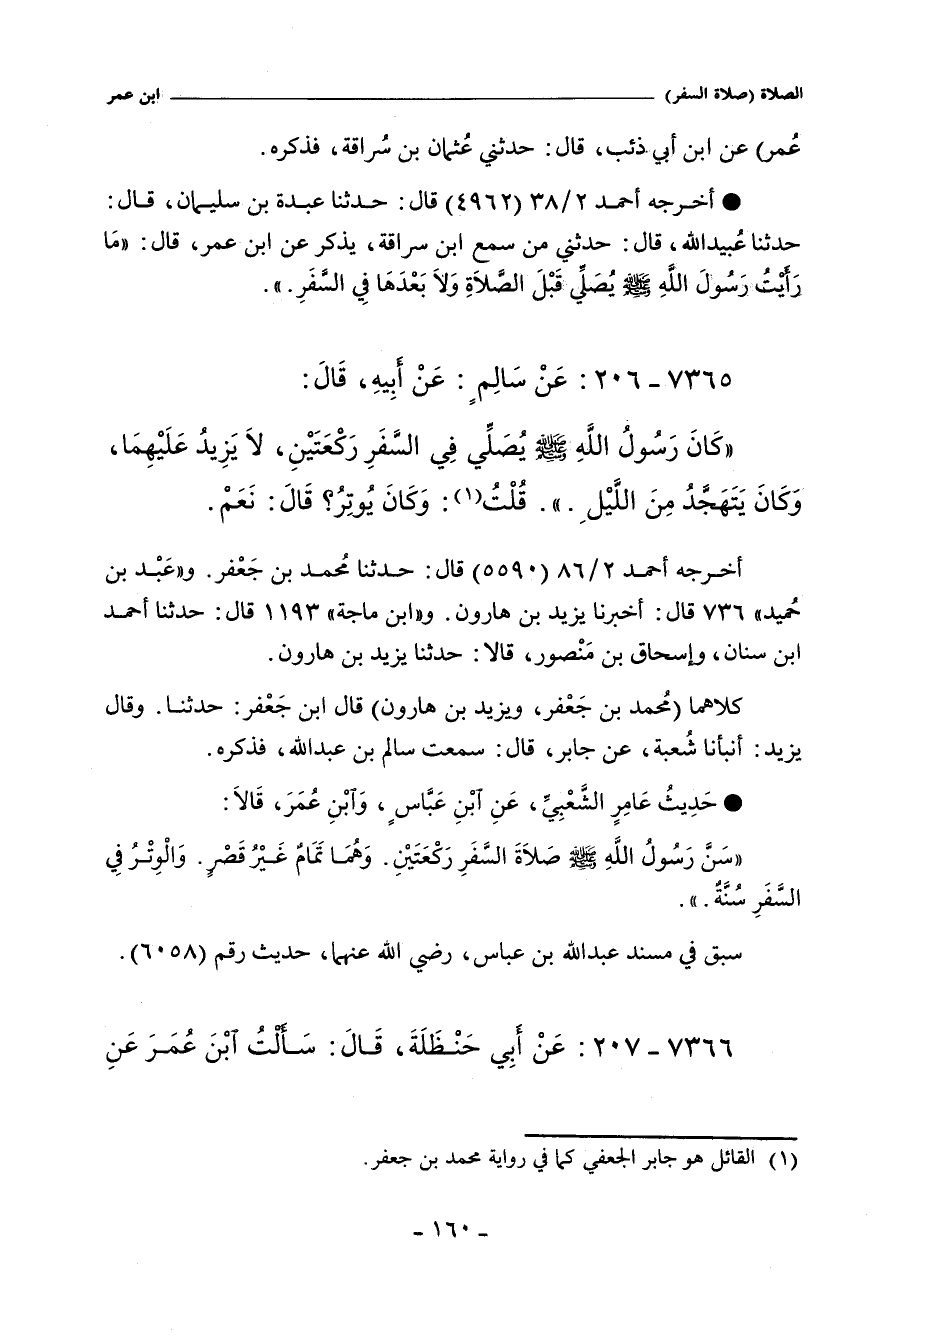 الصلاة (صلاة السفر) ابن عمر
عُمر) عن ابن أبي ذئب، قال: حدثني عُثمان بن سُراقة، فذكره.
● أخرجه أحمد ٣٨/٢ (٤٩٦٢) قال: حدثنا عبدة بن سليمان، قال:
حدثنا عُبيدالله، قال: حدثني من سمع ابن سراقة، يذكر عن ابن عمر، قال: «مَا
رَأَيْتُ رَسُولَ اللَّهِ ﷺ يُصَلِّي قَبْلَ الصَّلَاةِ وَلَا بَعْدَهَا فِي السَّفَرِ.».
٧٣٦٥ - ٢٠٦: عَنْ سَالِمٍ: عَنْ أَبِيهِ، قَالَ:
«كَانَ رَسُولُ اللَّهِ ﷺ يُصَلِّي فِي السَّفَرِ رَكْعَتَيْنِ، لَا يَزِيدُ عَلَيْهِمَا،
وَكَانَ يَتَهَجَّدُ مِنَ اللَّيْلِ.». قُلْتُ(١): وَكَانَ يُوتِرُ؟ قَالَ: نَعَمْ.
أخرجه أحمد ٨٦/٢ (٥٥٩٠) قال: حدثنا مُحمد بن جَعْفر. و«عَبْد بن
حُميد» ٧٣٦ قال: أخبرنا يزيد بن هارون. و«ابن ماجة» ١١٩٣ قال: حدثنا أحمد
ابن سنان، وإسحاق بن مَنْصور، قالا: حدثنا يزيد بن هارون.
كلاهما (مُحمد بن جَعْفر، ويزيد بن هارون) قال ابن جَعْفر: حدثنا. وقال
يزيد: أنبأنا شُعبة، عن جابر، قال: سمعت سالم بن عبدالله، فذكره.
● حَدِيثُ عَامِرٍ الشَّعْبِيِّ، عَنِ ٱبْنِ عَبَّاسٍ، وَٱبْنِ عُمَرَ، قَالَا:
«سَنَّ رَسُولُ اللَّهِ ﷺ صَلَاةَ السَّفَرِ رَكْعَتَيْنِ. وَهُمَا تَمَامٌ غَيْرُ قَصْرٍ. وَالْوِتْرُ فِي
السَّفَرِ سُنَّةٌ.».
سبق في مسند عبدالله بن عباس، رضي الله عنهما، حديث رقم (٦٠٥٨).
٧٣٦٦ - ٢٠٧: عَنْ أَبِي حَنْظَلَةَ، قَالَ: سَأَلْتُ ٱبْنَ عُمَرَ عَنِ
(١) القائل هو جابر الجعفي كما في رواية محمد بن جعفر.
- ١٦٠ -